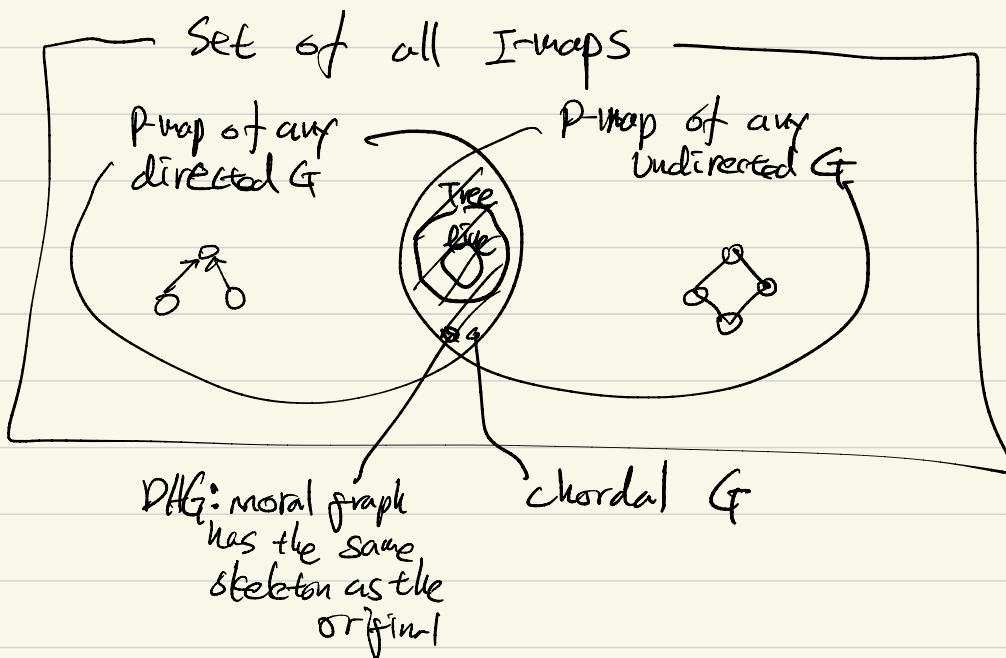 Set of all I-maps
P-map of any
directed G
P-map of any
Undirected G
Tree
line
DAG: moral graph
has the same
skeleton as the
original
chordal G